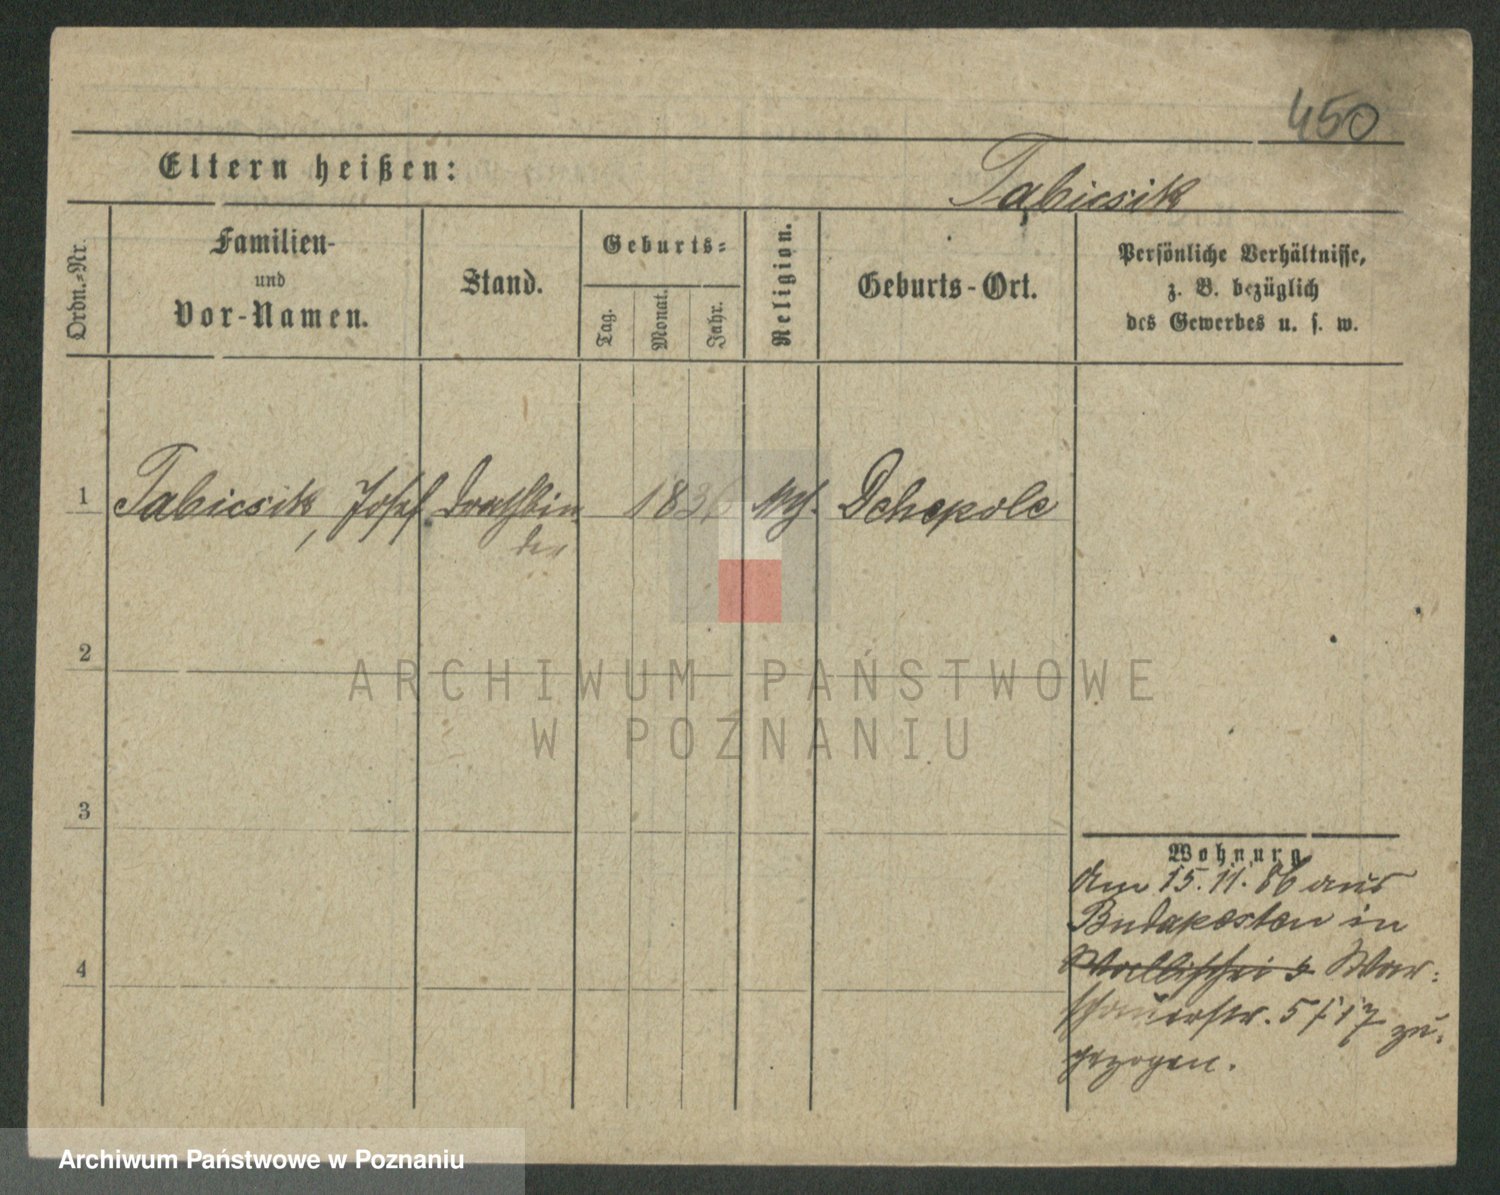 450
Eltern heißen:
Tabicsik
Ordn.-Nr.
Familien-
und
Vor-Namen.
Stand.
Geburts-
Tag.
Monat.
Jahr.
Religion.
Geburts-Ort.
Persönliche Verhältnisse,
z. B. bezüglich
des Gewerbes u. s. w.
1 Tabicsik, Josef Drathbin 1836 Dehepole
der
2
ARCHIWUM PAŃSTWOWE
W POZNANIU
3
Wohnung
Am 15.11.86 aus
Budapesten in
Wallischei 5 War-
schauerstr. 5/17 zu-
gezogen.
4
Archiwum Państwowe w Poznaniu